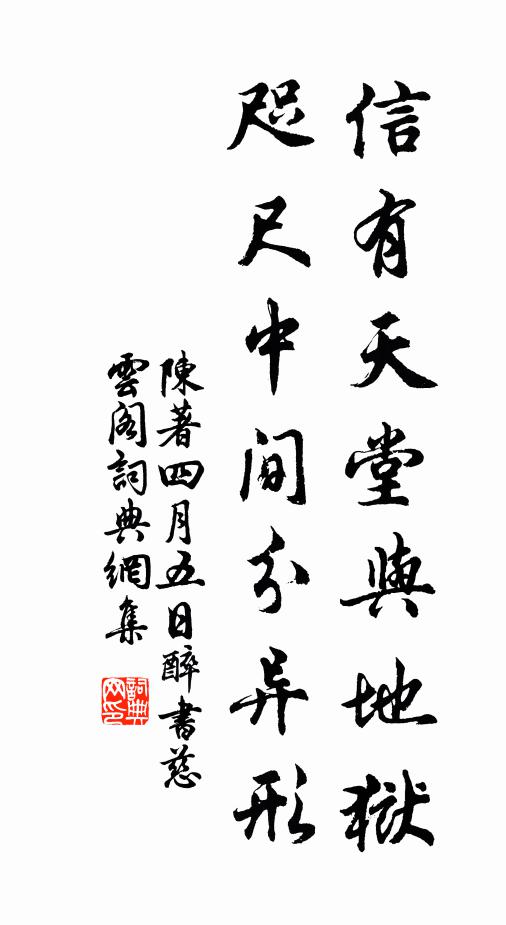 信有天堂與地獄
咫尺中間分异形
陳著四月五日醉書慈
雲閣詞典網集
詞典网印